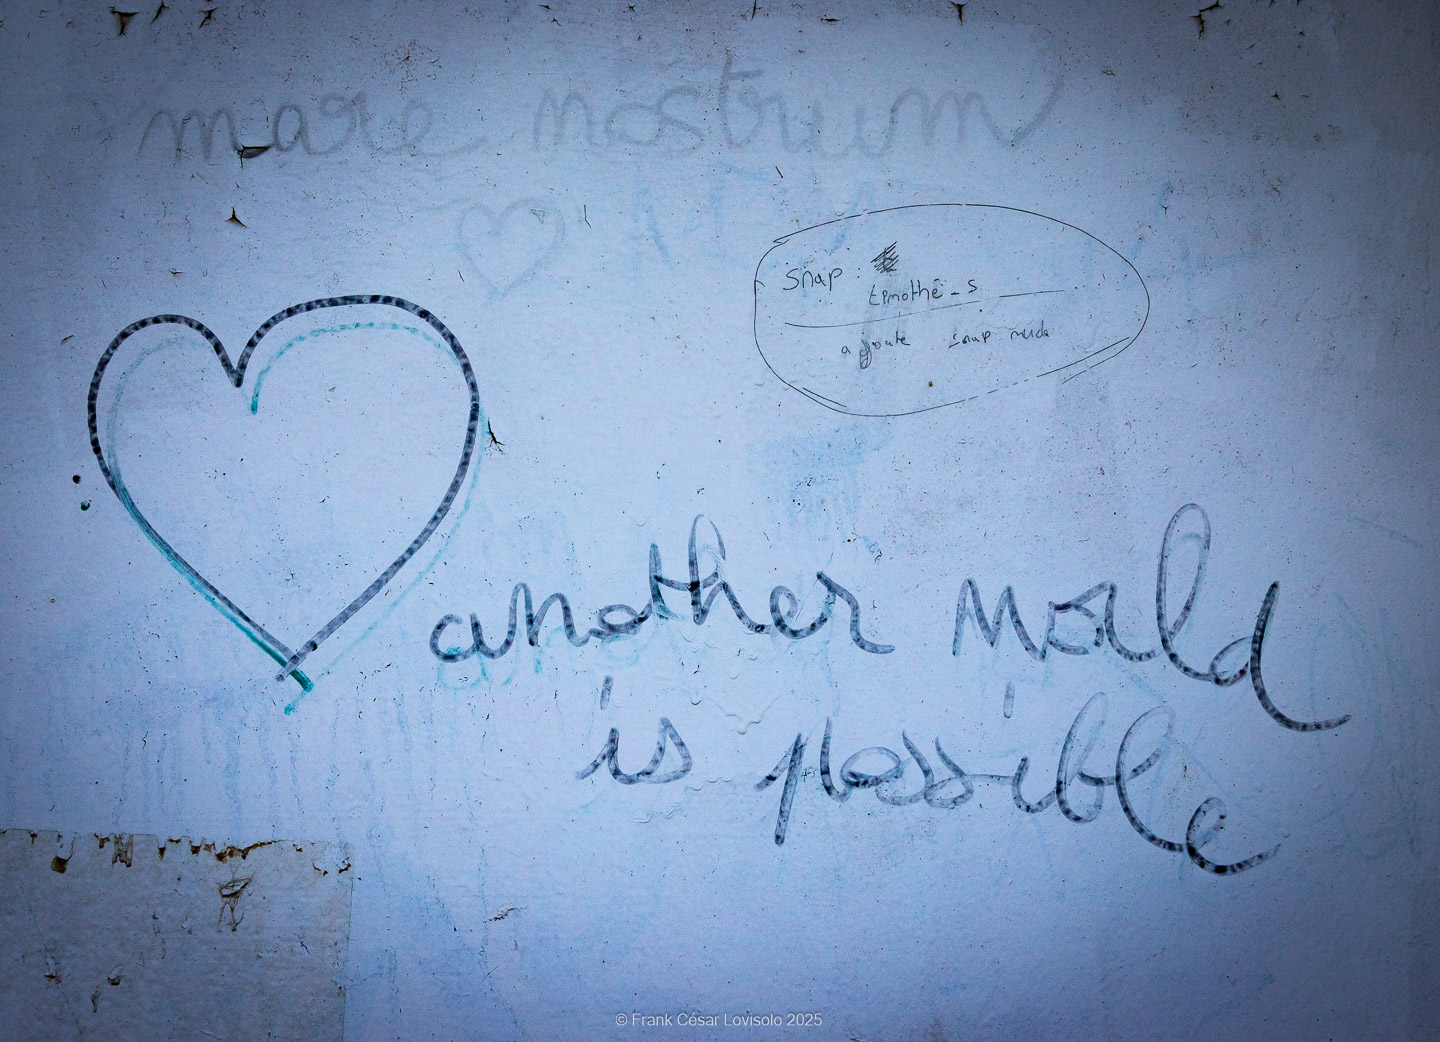 mare nostrum
snap :
timothe_s
ajoute snap nude
another world
is possible
© Frank César Lovisolo 2025